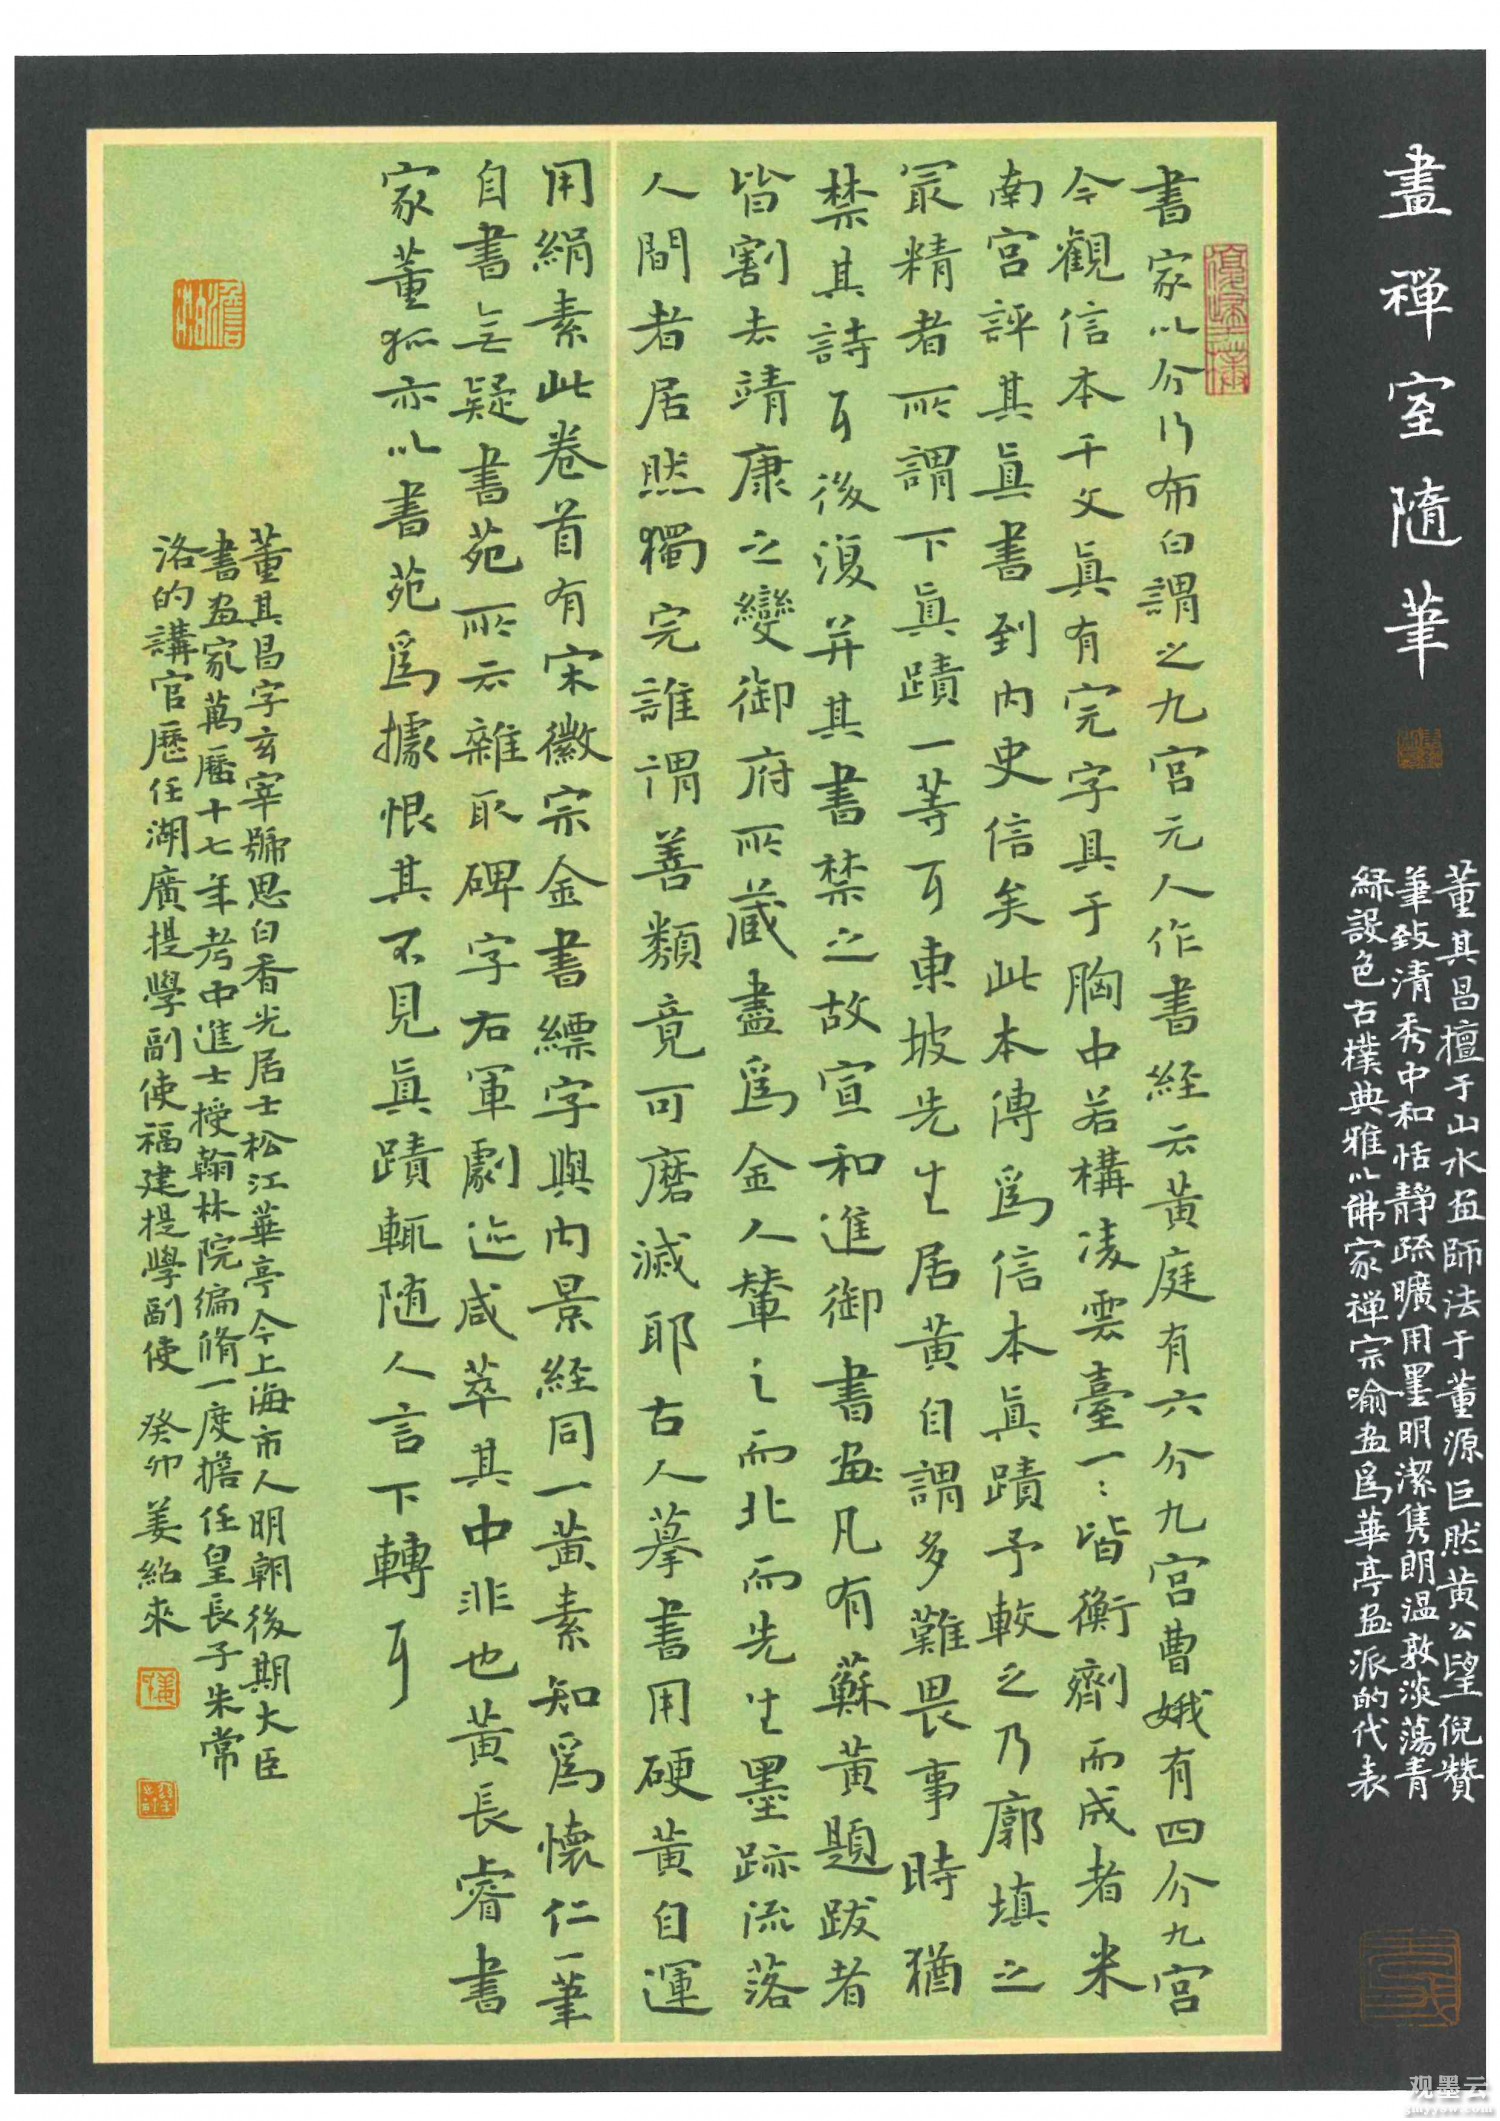 畫禪室随筆
董其昌擅于山水畫師法于董源巨然黄公望倪贊
筆致清秀中和恬静疏曠用墨明潔雋朗温敦淡蕩青
緑設色古樸典雅以佛家禅宗喻畫爲華亭畫派的代表
書家以分行布白謂之九宫元人作書経云黄庭有六分九宫曹娥有四分九宫
今觀信本千文真有完字具于胸中若構凌雲臺一〻皆衡劑而成者米
南宫評其真書到内史信矣此本傳爲信本真蹟予較之乃廓填之
最精者所謂下真蹟一等可東坡先生居黄自謂多難畏事時猶
禁其詩耳後復并其書禁之故宣和進御書畫凡有蘇黄題跋者
皆割去靖康之變御府所藏盡爲金人輦之而北而先生墨跡流落
人間者居然獨完誰謂善類竟可磨滅耶古人摹書用硬黄自運
用絹素此卷首有宋徽宗金書縹字與内景経同一黄素知爲懷仁一筆
自書無疑書苑所云雜取碑字右軍劇迹咸萃其中非也黄長睿書
家董狐亦以書苑爲據恨其不見真蹟輒随人言下轉耳
董其昌字玄宰號思白香光居士松江華亭今上海市人明朝後期大臣
書畫家萬曆十七年考中進士授翰林院編脩一度擔任皇長子朱常
洛的講官歷任湖廣提學副使福建提學副使 癸卯 姜紹來
观墨云
gmyyow.com